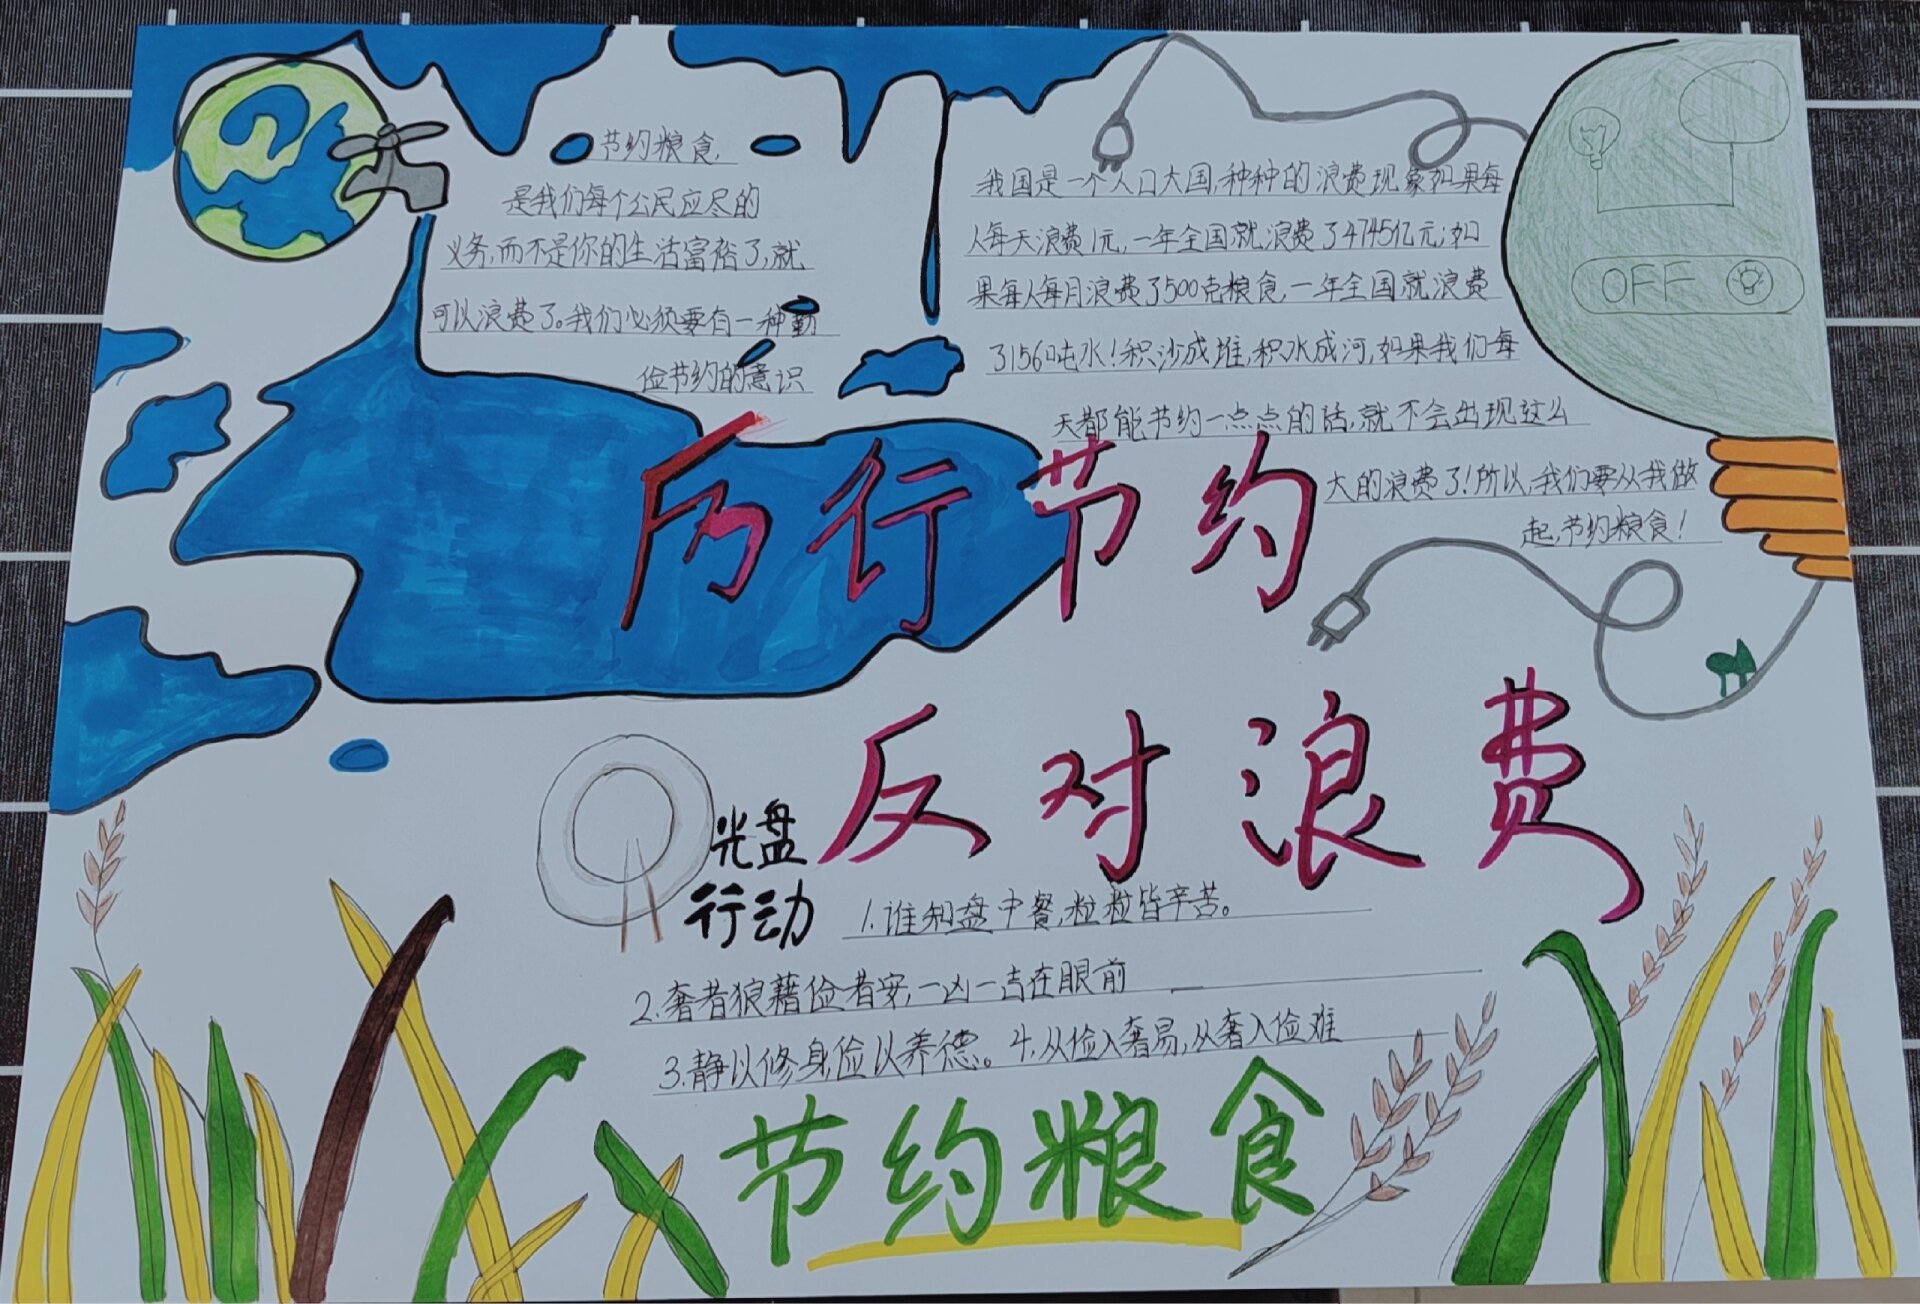 节约粮食,
是我们每个公民应尽的
义务,而不是你的生活富裕了,就
可以浪费了。我们必须要有一种勤
俭节约的意识
我国是一个人口大国,种种的浪费现象如果每
人每天浪费1元,一年全国就浪费了4745亿元;如
果每人每月浪费了500克粮食,一年全国就浪费
3156吨水!积沙成堆,积水成河,如果我们每
天都能节约一点点的话,就不会出现这么
大的浪费了!所以,我们要从我做
起,节约粮食!
OFF
厉行节约
反对浪费
光盘
行动
1.谁知盘中餐,粒粒皆辛苦。
2.奢者狼藉俭者安,一凶一吉在眼前
3.静以修身俭以养德。4.从俭入奢易,从奢入俭难
节约粮食